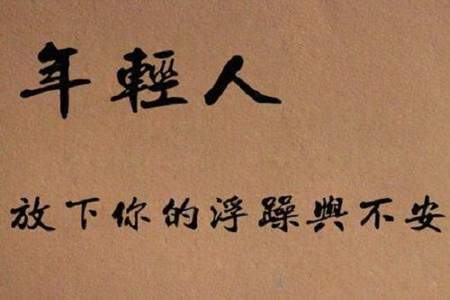 年輕人
放下你的浮躁與不安